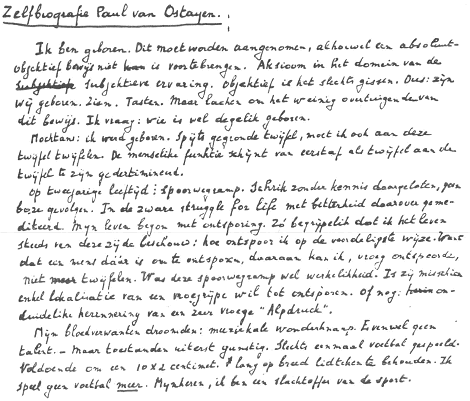 Zelfbiografie Paul van Ostayen.
Ik ben geboren. Dit moet worden aangenomen, alhoewel een absoluut-
objektief bewijs niet voort te brengen. Aksioom in het domein van de
subjektieve ervaring. Objektief is het slechts gissen. Dus: zijn
wij geboren. Zien. Tasten. Maar lachen om het weinig overtuigende van
dit bewijs. Ik vraag: wie is wel degelik geboren.
Mochtans: ik werd geboren. Spijts gegronde twijfel, moet ik ook aan deze
twijfel twijfelen. De menselike funktie schijnt van eerstaf als twijfel aan de
twijfel te zijn gedetermineerd.
Op tweejarige leeftijd: spoorwegramp. Schrik zonder kennis daargelaten, geen
boze gevolgen. In de zware struggle for life met bitterheid daarover geme-
diteerd. Mijn leven begon met ontsporing. Zó begrijpelik dat ik het leven
steeds van deze zijde beschouw: hoe ontspoor ik op de voordeligste wijze. Want
dat een mens dáár is om te ontsporen, daaraan kan ik, vroeg ontspoorde,
niet twijfelen. Was deze spoorwegramp wel werkelikheid. Is zij misschien
enkel lokalisatie van een vroegrijpe wil tot ontsporen. Of nog: on-
duidelike herinnering van een zeer vroege "Alpdruck".
Mijn bloedverwanten droomden: muziekale wonderknaap. Evenwel geen
talent. - Maar toestanden uiterst gunstig. Slechts eenmaal voetbal gespeeld.
Voldoende om een 10 x 2 centimet. lang op breed lidteken te behouden. Ik
speel geen voetbal meer. Mijnheren, ik ben een slachtoffer van de sport.